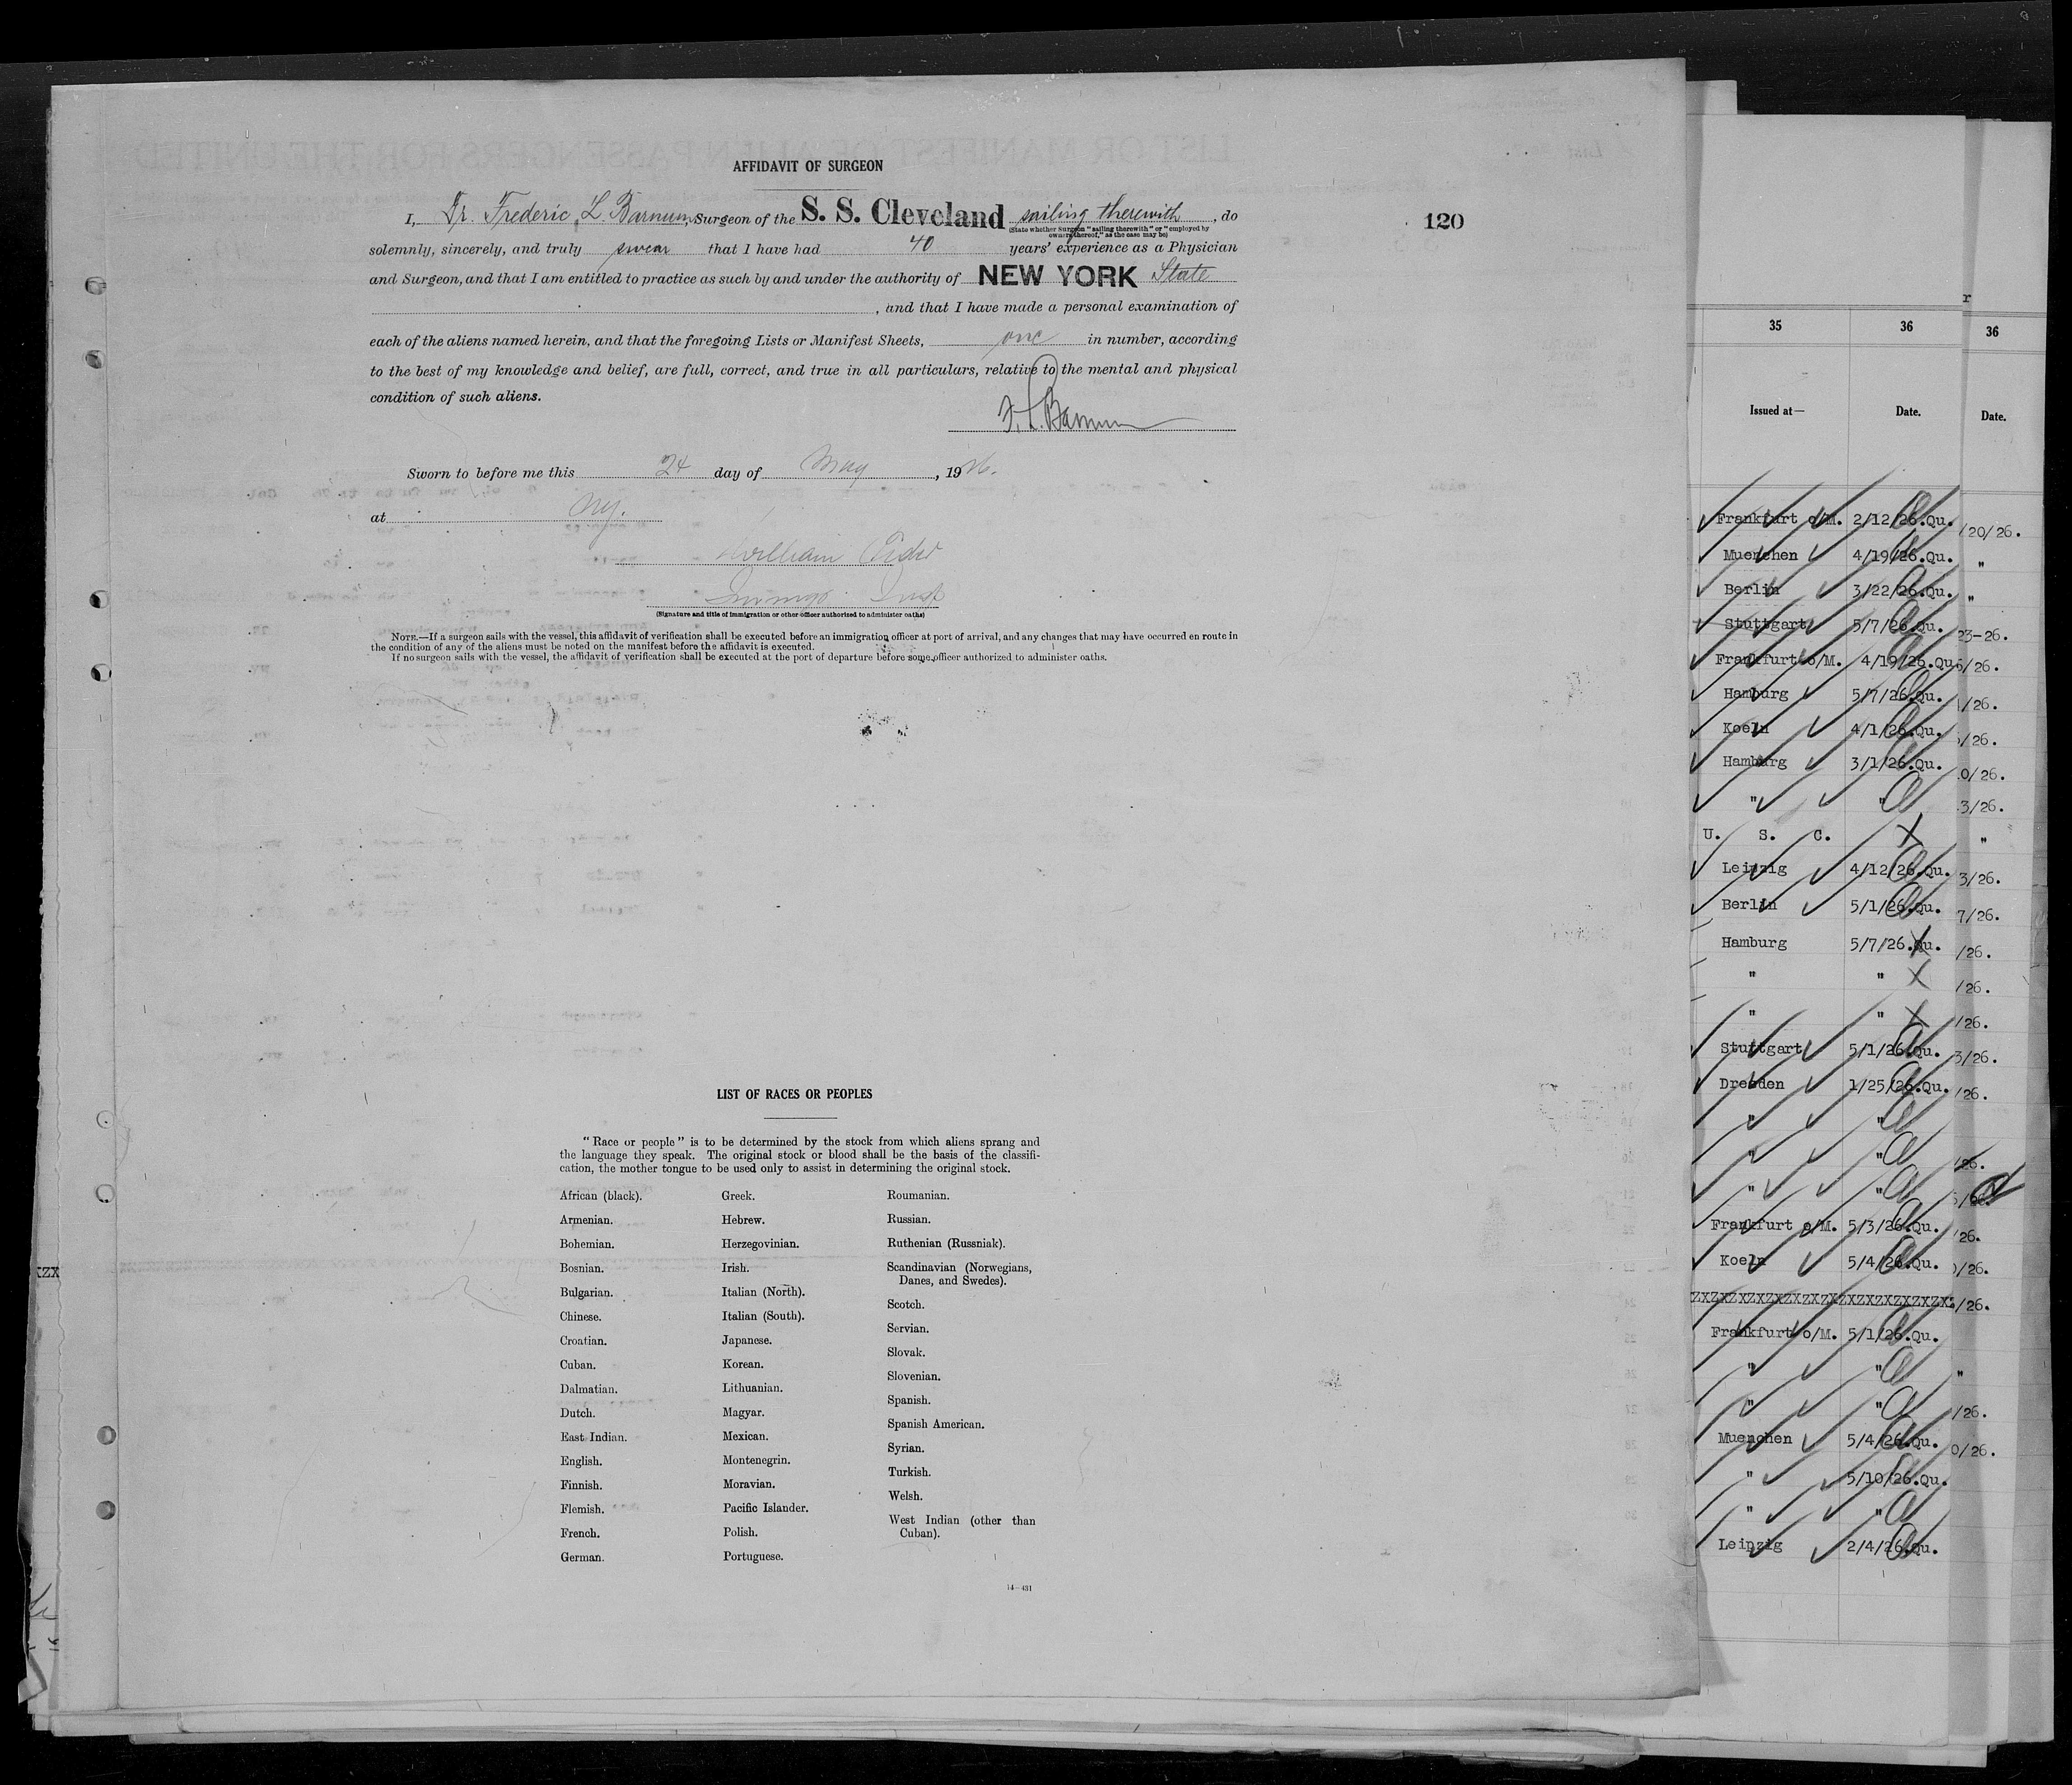 AFFIDAVIT OF SURGEON
I, Dr. Frederic L. Barnum, Surgeon of the S. S. Cleveland sailing therewith, do
(State whether Surgeon "sailing therewith" or "employed by
owners thereof," as the case may be)
120
solemnly, sincerely, and truly swear that I have had 40 years' experience as a Physician
and Surgeon, and that I am entitled to practice as such by and under the authority of NEW YORK State
, and that I have made a personal examination of
each of the aliens named herein, and that the foregoing Lists or Manifest Sheets, one in number, according
to the best of my knowledge and belief, are full, correct, and true in all particulars, relative to the mental and physical
condition of such aliens.
F. L. Barnum
Sworn to before me this 24 day of May, 1926.
at NY.
William
Immig. Insp
(Signature and title of immigration or other officer authorized to administer oaths)
NOTE.—If a surgeon sails with the vessel, this affidavit of verification shall be executed before an immigration officer at port of arrival, and any changes that may have occurred en route in
the condition of any of the aliens must be noted on the manifest before the affidavit is executed.
If no surgeon sails with the vessel, the affidavit of verification shall be executed at the port of departure before some officer authorized to administer oaths.
LIST OF RACES OR PEOPLES
"Race or people" is to be determined by the stock from which aliens sprang and
the language they speak. The original stock or blood shall be the basis of the classifi-
cation, the mother tongue to be used only to assist in determining the original stock.
African (black).
Armenian.
Bohemian.
Bosnian.
Bulgarian.
Chinese.
Croatian.
Cuban.
Dalmatian.
Dutch.
East Indian.
English.
Finnish.
Flemish.
French.
German.
Greek.
Hebrew.
Herzegovinian.
Irish.
Italian (North).
Italian (South).
Japanese.
Korean.
Lithuanian.
Magyar.
Mexican.
Montenegrin.
Moravian.
Pacific Islander.
Polish.
Portuguese.
Roumanian.
Russian.
Ruthenian (Russniak).
Scandinavian (Norwegians,
Danes, and Swedes).
Scotch.
Servian.
Slovak.
Slovenian.
Spanish.
Spanish American.
Syrian.
Turkish.
Welsh.
West Indian (other than
Cuban).
14—431
35 36
Issued at— Date.
Frankfurt o/M. 2/12/26.Qu.
Muenchen 4/19/26.Qu.
Berlin 3/22/26.Qu.
Stuttgart 5/7/26.Qu.
Frankfurt o/M. 4/19/26.Qu
Hamburg 5/7/26.Qu.
Koeln 4/1/26.Qu.
Hamburg 3/1/26.Qu.
" "
U. S. C. X
Leipzig 4/12/26.Qu.
Berlin 5/1/26.Qu.
Hamburg 5/7/26.Qu.
" " X
" " X
Stuttgart 5/1/26.Qu.
Dresden 1/25/26.Qu.
" "
" "
" "
Frankfurt o/M. 5/3/26.Qu.
Koeln 5/4/26.Qu.
ZXZXZXZXZXZXZXZXZXZXZXZXZXZX
Frankfurt o/M. 5/1/26.Qu.
" "
" "
Muenchen 5/4/26.Qu.
" 5/10/26.Qu.
" "
Leipzig 2/4/26.Qu.
36
Date.
/20/26.
"
"
23-26.
/26.
/26.
/26.
0/26.
3/26.
"
3/26.
7/26.
/26.
/26.
/26.
3/26.
/26.
/26.
/26.
/26.
/26.
"
/26.
0/26.